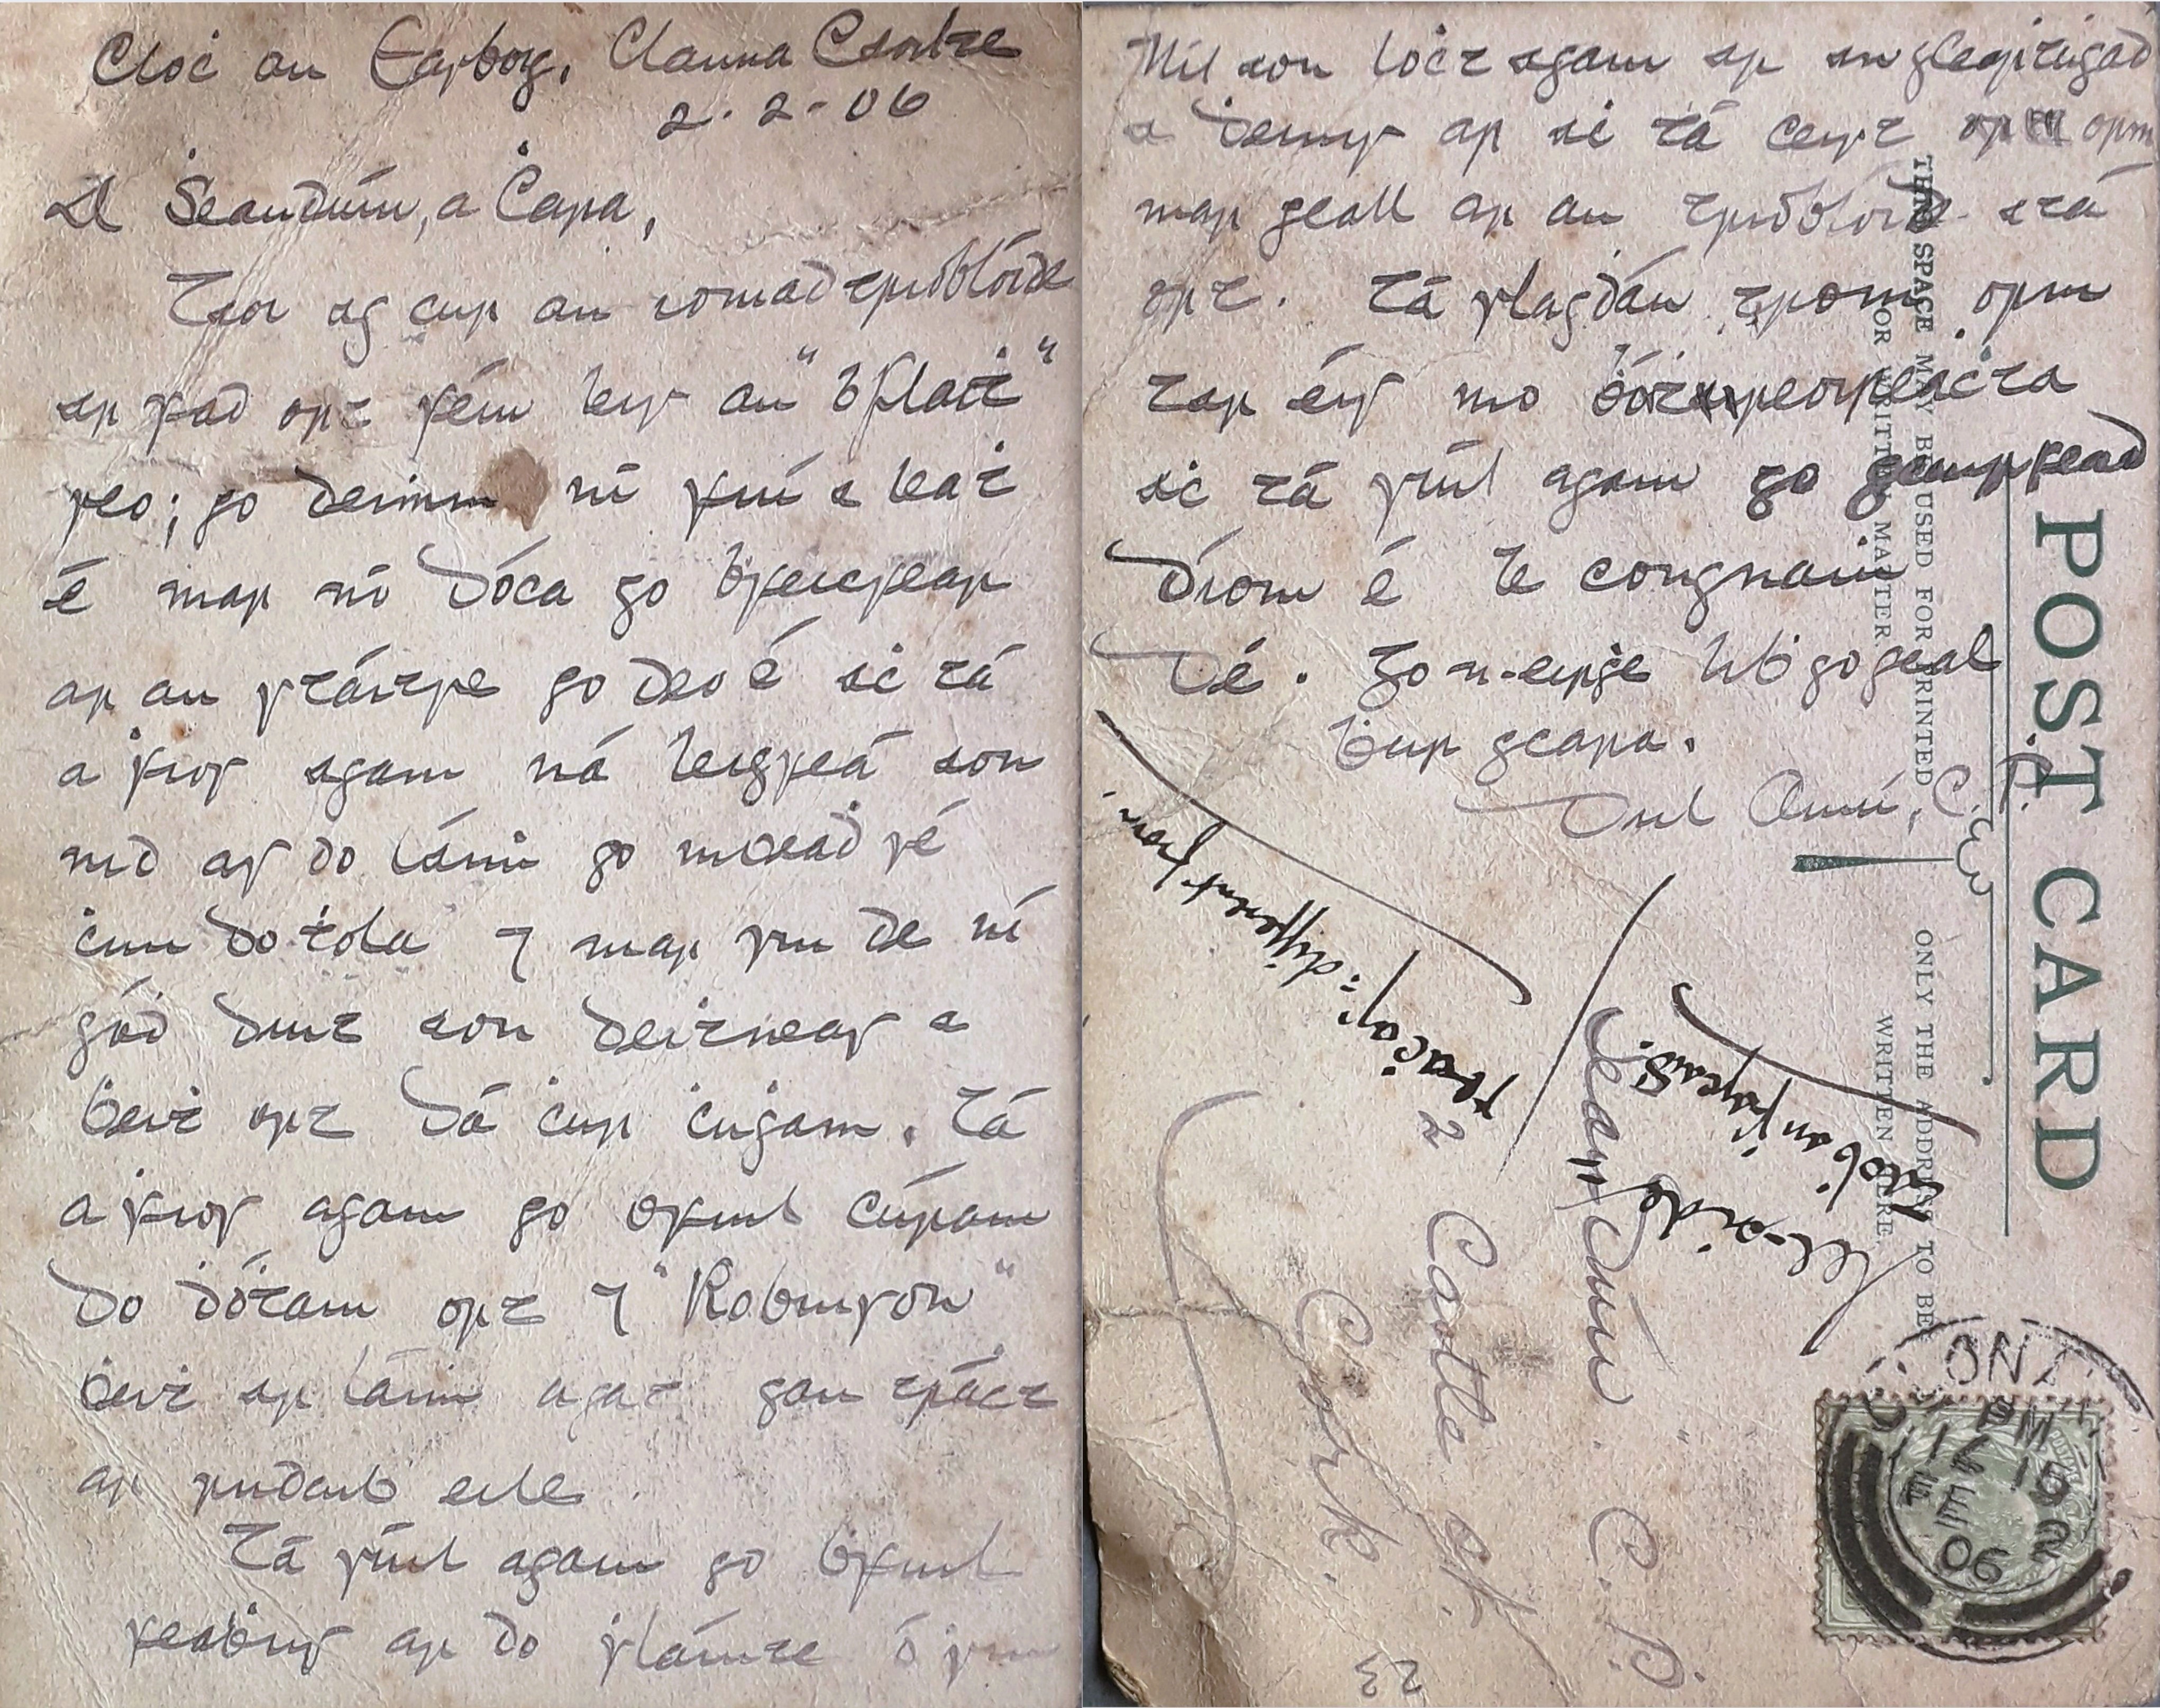 Cloċ an Easboig, Clanna Caoilte
2-2-06
A Ṡeandúin, a Ċara,
Taoi ag cur an iomad triobloíde
ar fad ort féin leis an "bFlaiṫ"
seo; go deiṁin ní fiú a leaṫ
é mar ní dóċa go bfeicfear
ar an stáitse go deo é aċ tá
a ḟios agam ná leigfeá aon
nid as do láiṁ go mbeaḋ sé
ċun do ṫola ⁊ mar sin de ní
gáḋ duit aon deiṫneas a
ḃeiṫ ort dá ċur ċuġam. Tá
a ḟios agam go ḃfuil cúram
do ḋóṫain ort ⁊ "Robinson"
ḃeiṫ ar láiṁ agat gan tráċt
ar rudaiḃ eile.
Tá súil agam go ḃfuil
feaḃus ar do ṡláinte ó ṡin
Níl aon loċt agam ar an gleasrúġaḋ
a ḋeinis ar aċ tá ceist orm
mar geall ar an triobloíd atá
ort. Tá slaġdán trom orm
tar éis mo ḃóṫaireoireaċta
aċ tá súil agam go gcuirfead
díom é le congnaiṁ
Dé. Go n-eiriġe liḃ go geal
ḃur gcara.
Dul Amú, C. P.
POST CARD
THIS SPACE MAY BE USED FOR PRINTED
OR WRITTEN MATTER
ONLY THE ADDRESS TO BE
WRITTEN HERE.
Sean Dún C. P.
2 Castle St.
Cork.
23
different from
ONA
PM
15
FE 2
06